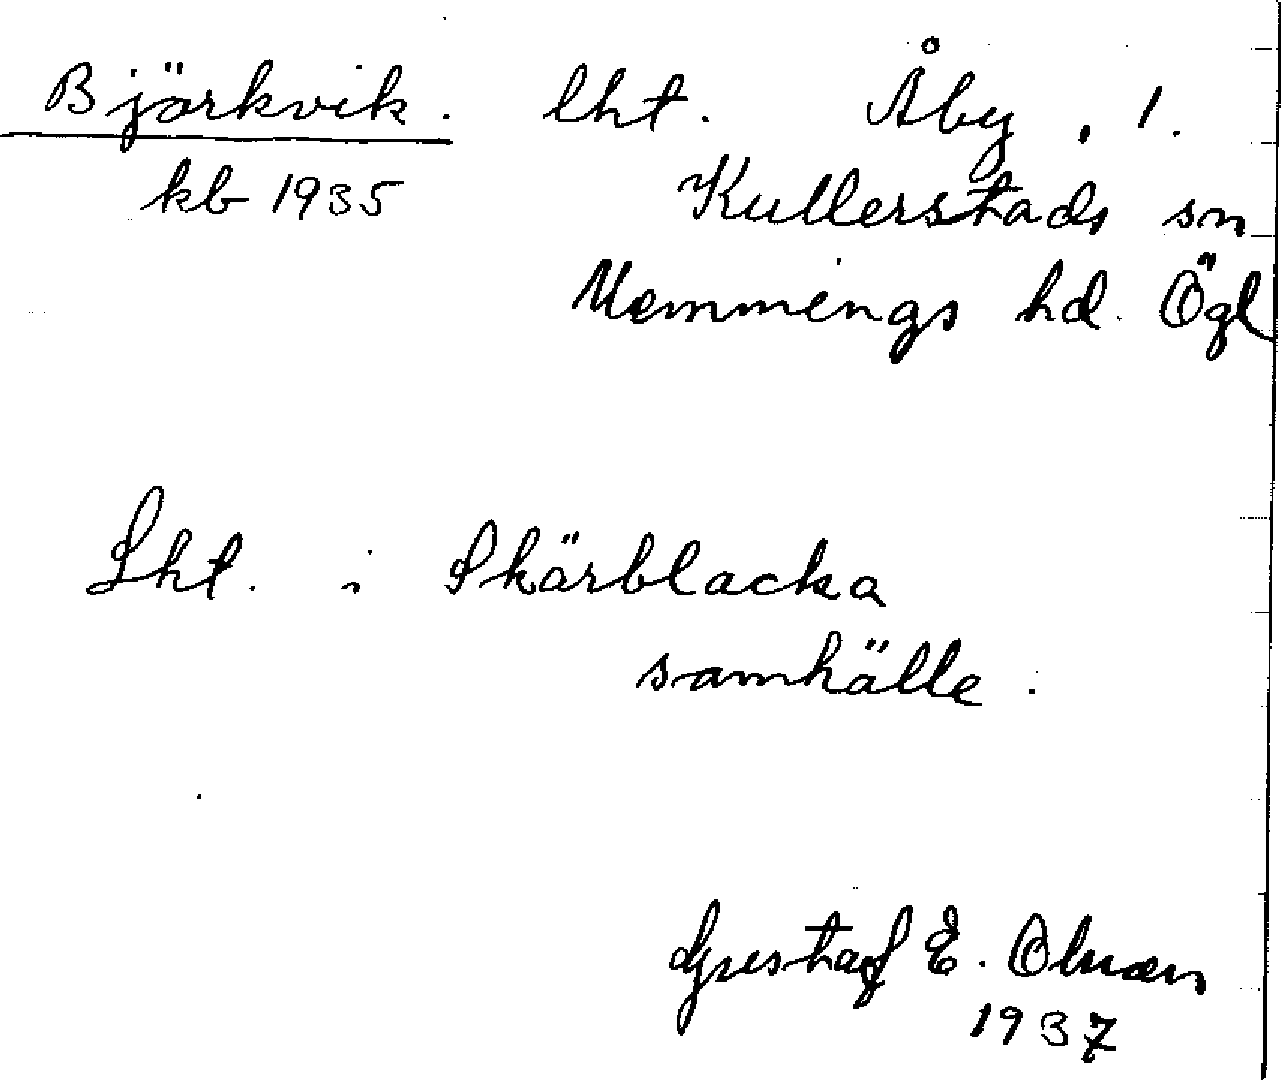 Björkvik. lht. Åby, 1.
kb 1935 Kullerstads sn
Memmings hd. Ögl
Lht. i Skärblacka
samhälle.
Gustaf E.
1937